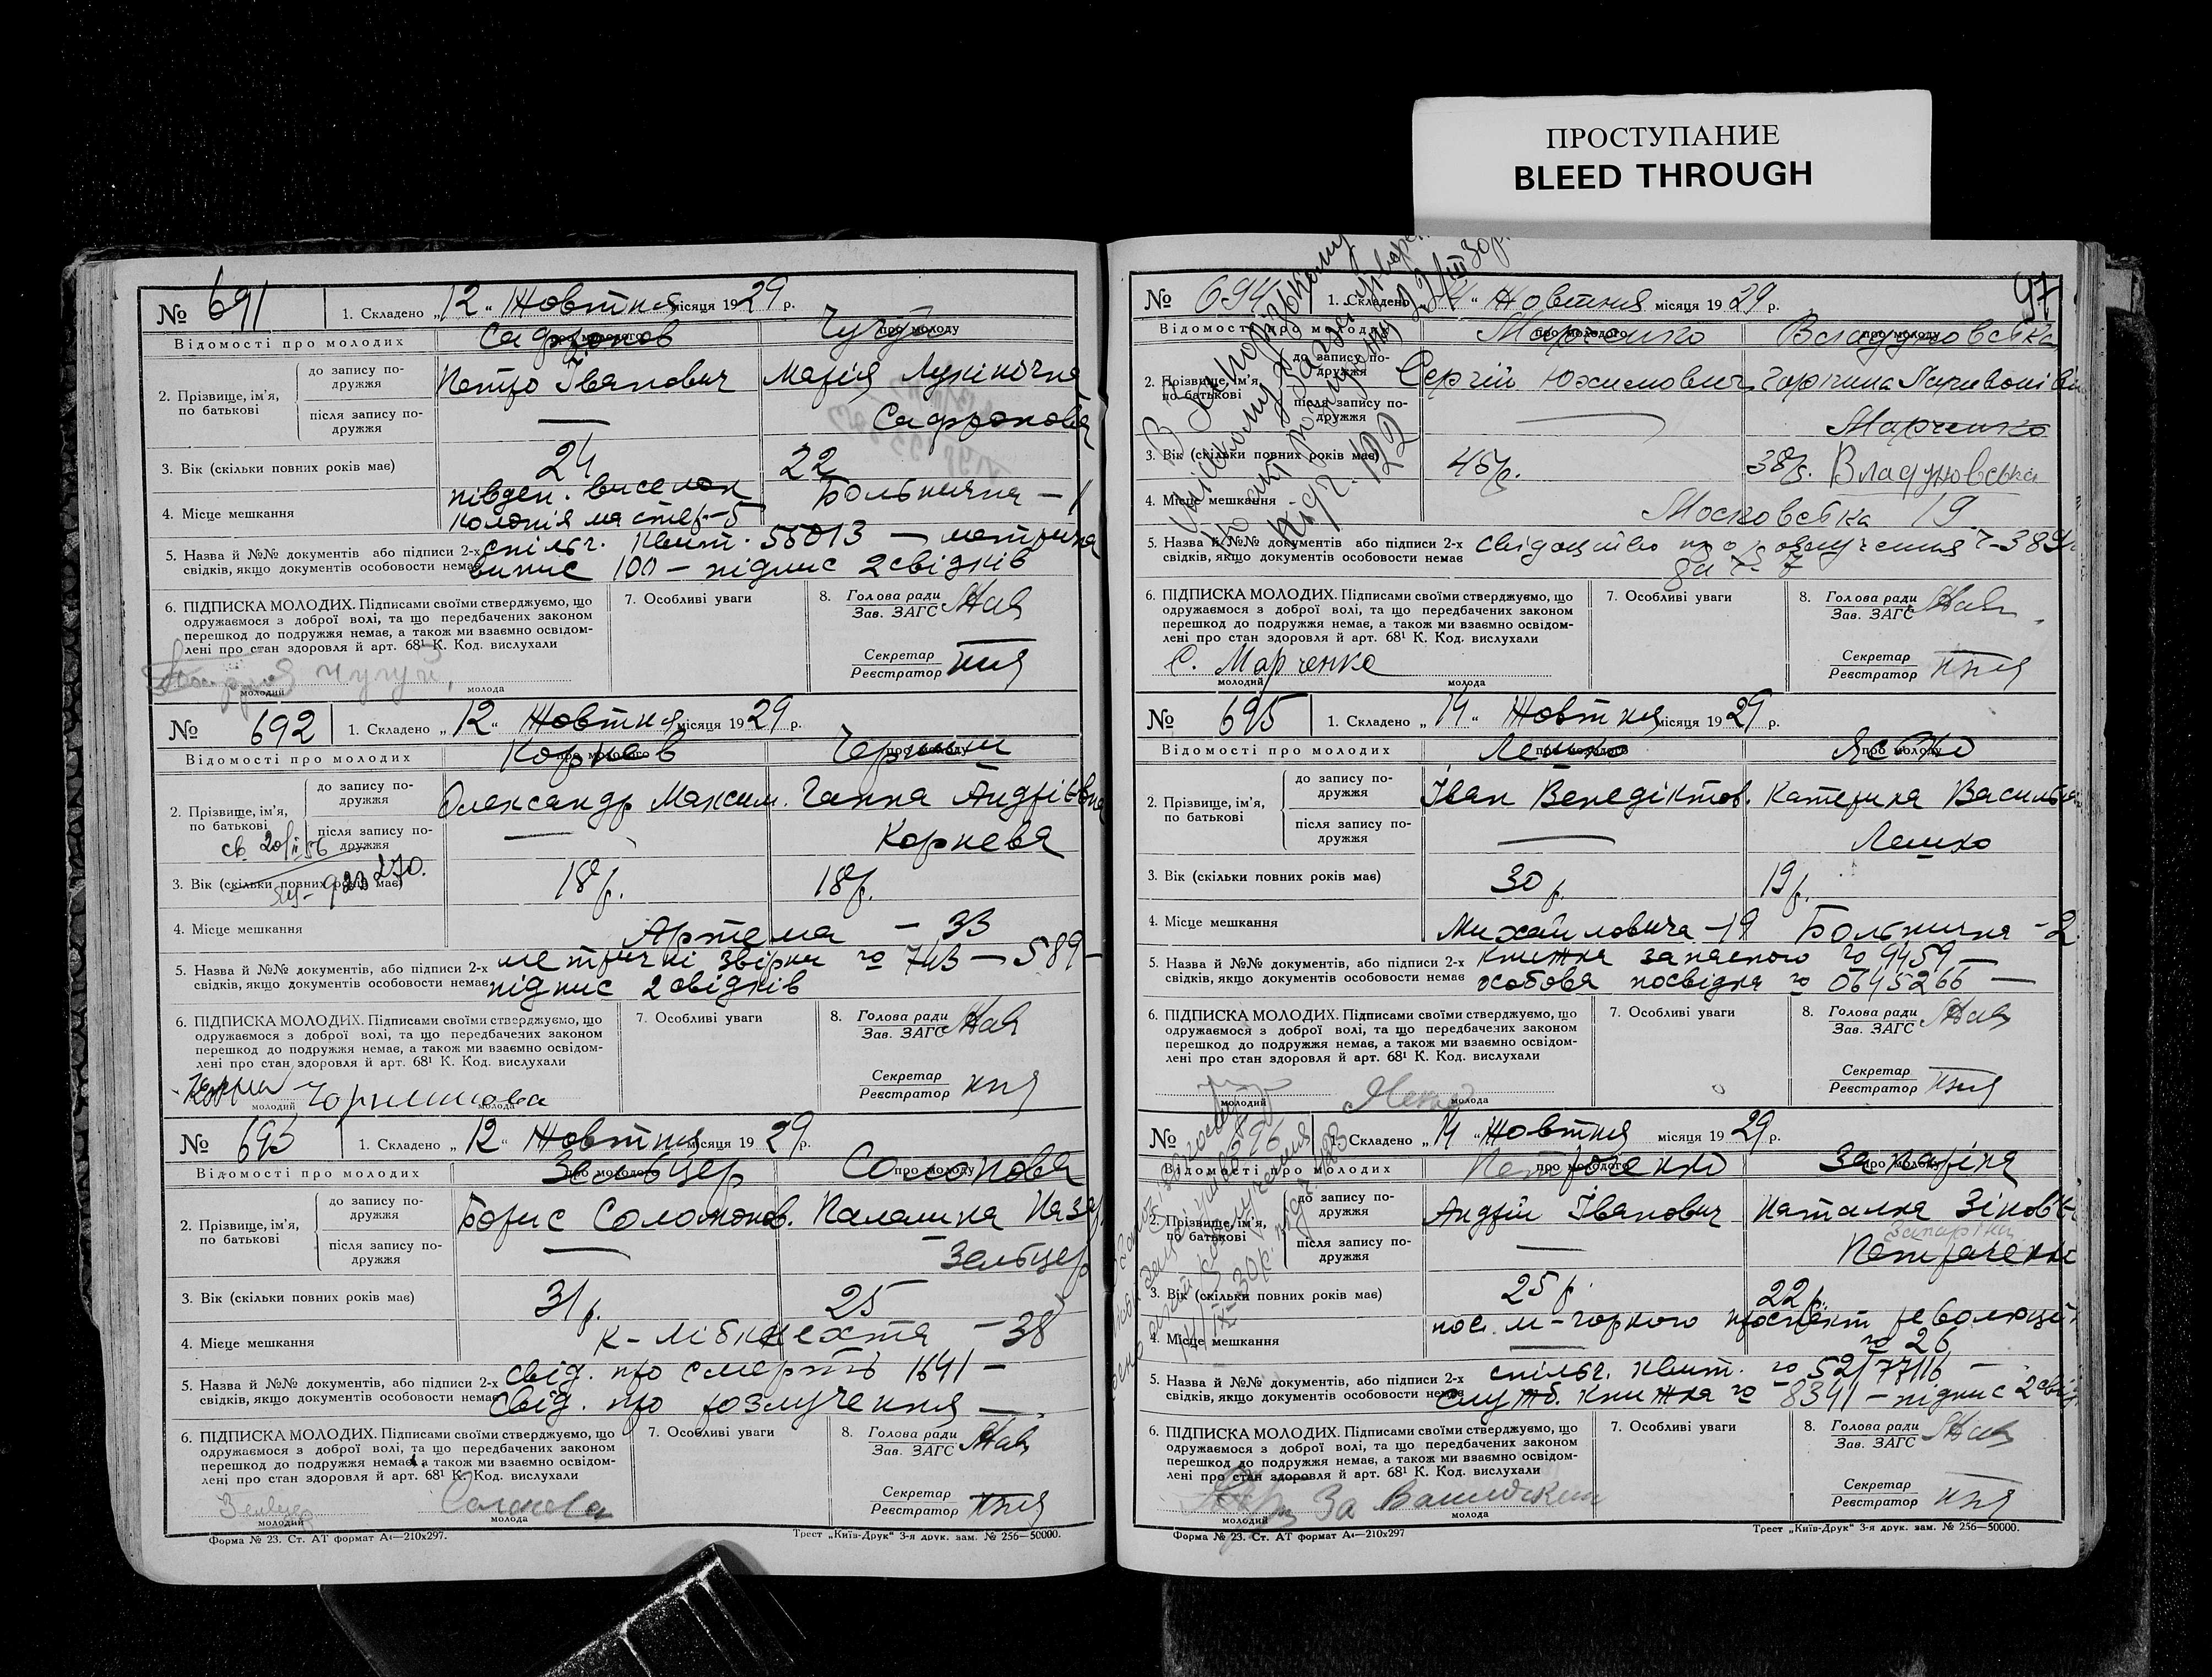 ПРОСТУПАНИЕ
BLEED THROUGH
№ 691 1. Складено „12“ Жовтня місяця 1929 р.
Відомості про молодих про молодого про молоду
Сафронов Чугуй
2. Прізвище, ім'я, по батькові
до запису подружжя Петро Іванович Марія Лукінична
після запису подружжя — Сафронова
3. Вік (скільки повних років має) 24 22
4. Місце мешкання півден. виселок Больнична — 1
колонія мастер-5
5. Назва й №№ документів або підписи 2-х спільч. квит. 55013 — метрична
свідків, якщо документів особовости немає випис 100 — підпис 2 свідків
6. ПІДПИСКА МОЛОДИХ. Підписами своїми стверджуємо, що
одружаємося з доброї волі, та що передбачених законом
перешкод до подружжя немає, а також ми взаємно освідом-
лені про стан здоровля й арт. 68¹ К. Код. вислухали
Чугуй
молодий молода
7. Особливі уваги
8. Голова ради
Зав. ЗАГС
Секретар
Реєстратор
№ 692 1. Складено „12“ Жовтня місяця 1929 р.
Відомості про молодих про молодого про молоду
Корнєв Черниш
2. Прізвище, ім'я, по батькові
до запису подружжя Олександр Максим. Ганна Андріївна
після запису подружжя — Корнева
3. Вік (скільки повних років має) 18 р. 18 р.
4. Місце мешкання Артема — 33
5. Назва й №№ документів, або підписи 2-х метричні звірки № 743 — 589 —
свідків, якщо документів особовости немає підпис 2 свідків
6. ПІДПИСКА МОЛОДИХ. Підписами своїми стверджуємо, що
одружаємося з доброї волі, та що передбачених законом
перешкод до подружжя немає, а також ми взаємно освідом-
лені про стан здоровля й арт. 68¹ К. Код. вислухали
молодий молода
7. Особливі уваги
8. Голова ради
Зав. ЗАГС
Секретар
Реєстратор
№ 693 1. Складено „12“ Жовтня місяця 1929 р.
Відомості про молодих про молодого про молоду
Зельцер Солонова
2. Прізвище, ім'я, по батькові
до запису подружжя Борис Соломонов. Палашка Назар
після запису подружжя — Зельцер
3. Вік (скільки повних років має) 31 р. 25
4. Місце мешкання К-Лібкнехта — 38
5. Назва й №№ документів, або підписи 2-х свід. про смерть 1641 —
свідків, якщо документів особовости немає свід. про розлучення —
6. ПІДПИСКА МОЛОДИХ. Підписами своїми стверджуємо, що
одружаємося з доброї волі, та що передбачених законом
перешкод до подружжя немає, а також ми взаємно освідом-
лені про стан здоровля й арт. 68¹ К. Код. вислухали
молодий молода
7. Особливі уваги
8. Голова ради
Зав. ЗАГС
Секретар
Реєстратор
Форма № 23. Ст. АТ формат А4—210x297. Трест „Київ-Друк“ 3-я друк. зам. № 256—50000.
97
№ 694 1. Складено „14“ Жовтня місяця 1929 р.
Відомості про молодих про молодого про молоду
Марченко Владуновська
2. Прізвище, ім'я, по батькові
до запису подружжя Сергій Юхимович Горпина
після запису подружжя — Марченко
3. Вік (скільки повних років має) 45 р. 38 р. Владуновська
4. Місце мешкання Московська 19
5. Назва й №№ документів або підписи 2-х свідоцтво про розлучення
свідків, якщо документів особовости немає
6. ПІДПИСКА МОЛОДИХ. Підписами своїми стверджуємо, що
одружаємося з доброї волі, та що передбачених законом
перешкод до подружжя немає, а також ми взаємно освідом-
лені про стан здоровля й арт. 68¹ К. Код. вислухали
С. Марченко
молодий молода
7. Особливі уваги
8. Голова ради
Зав. ЗАГС
Секретар
Реєстратор
№ 695 1. Складено „14“ Жовтня місяця 1929 р.
Відомості про молодих про молодого про молоду
Лешко Ясько
2. Прізвище, ім'я, по батькові
до запису подружжя Іван Венедіктов. Катерина Василь
після запису подружжя — Лешко
3. Вік (скільки повних років має) 30 р. 19 р.
4. Місце мешкання Михайловича-19 Больнична -2
5. Назва й №№ документів, або підписи 2-х книжка запасного № 4459 —
свідків, якщо документів особовости немає особова посвідка № 0645266 —
6. ПІДПИСКА МОЛОДИХ. Підписами своїми стверджуємо, що
одружаємося з доброї волі, та що передбачених законом
перешкод до подружжя немає, а також ми взаємно освідом-
лені про стан здоровля й арт. 68¹ К. Код. вислухали
молодий молода
7. Особливі уваги
8. Голова ради
Зав. ЗАГС
Секретар
Реєстратор
№ 696 1. Складено „14“ Жовтня місяця 1929 р.
Відомості про молодих про молодого про молоду
Петроченко Запаріна
2. Прізвище, ім'я, по батькові
до запису подружжя Андрій Іванович Наталка Зіновь
після запису подружжя — Петраченко
3. Вік (скільки повних років має) 25 р. 22 р.
4. Місце мешкання пос. М-Горкого проспект революції
№ 26
5. Назва й №№ документів, або підписи 2-х спільч. квит. № 52/77116 —
свідків, якщо документів особовости немає служб. книжка № 8341 — підпис 2 свід
6. ПІДПИСКА МОЛОДИХ. Підписами своїми стверджуємо, що
одружаємося з доброї волі, та що передбачених законом
перешкод до подружжя немає, а також ми взаємно освідом-
лені про стан здоровля й арт. 68¹ К. Код. вислухали
молодий молода
7. Особливі уваги
8. Голова ради
Зав. ЗАГС
Секретар
Реєстратор
Форма № 23. Ст. АТ формат А4—210x297 Трест „Київ-Друк“ 3-я друк. зам. № 256—50000.